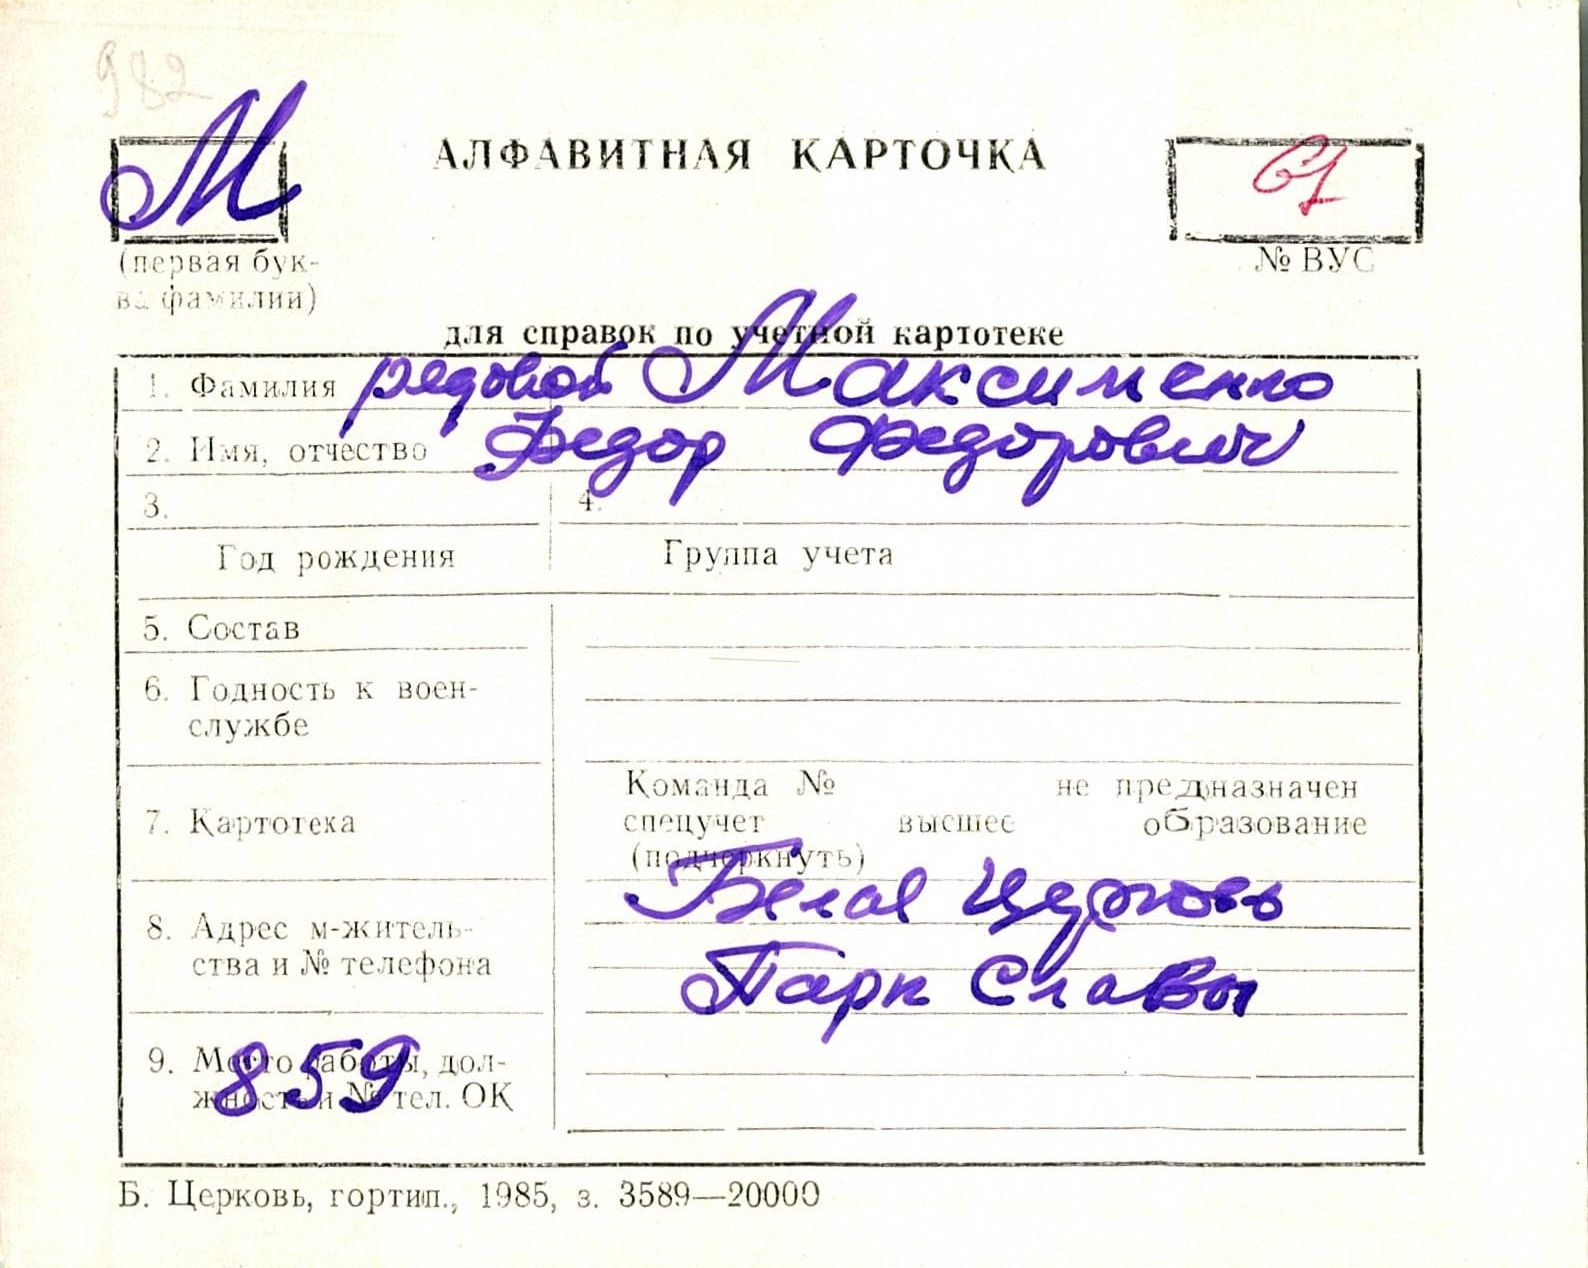 982
М
АЛФАВИТНАЯ КАРТОЧКА
61
(первая бук-
ва фамилии)
№ ВУС
для справок по учетной картотеке
1. Фамилия рядовой Максименко
2. Имя, отчество Федор Федорович
3. 4.
Год рождения Группа учета
5. Состав
6. Годность к воен-
службе
7. Картотека
Команда № не предназначен
спецучет высшее образование
(подчеркнуть)
8. Адрес м-житель-
ства и № телефона
Белая Церковь
Парк Славы
9. Место работы, дол-
жность и № тел. ОК
859
Б. Церковь, гортип., 1985, з. 3589—20000